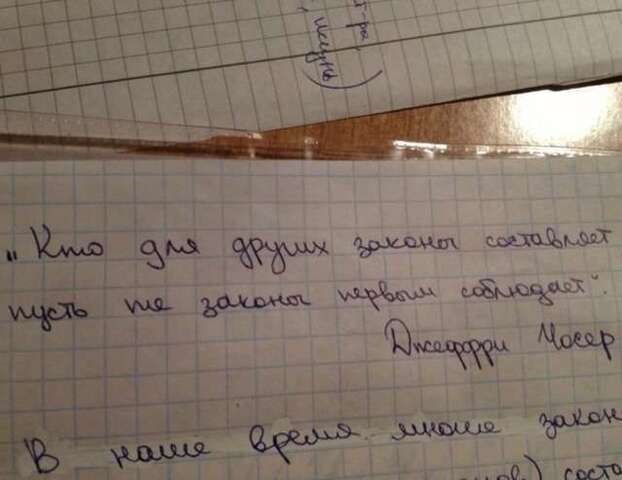 „Кто для других законы составляет
пусть те законы первым соблюдает“.
Джеффри Чосер
В наше время многие закон
сост